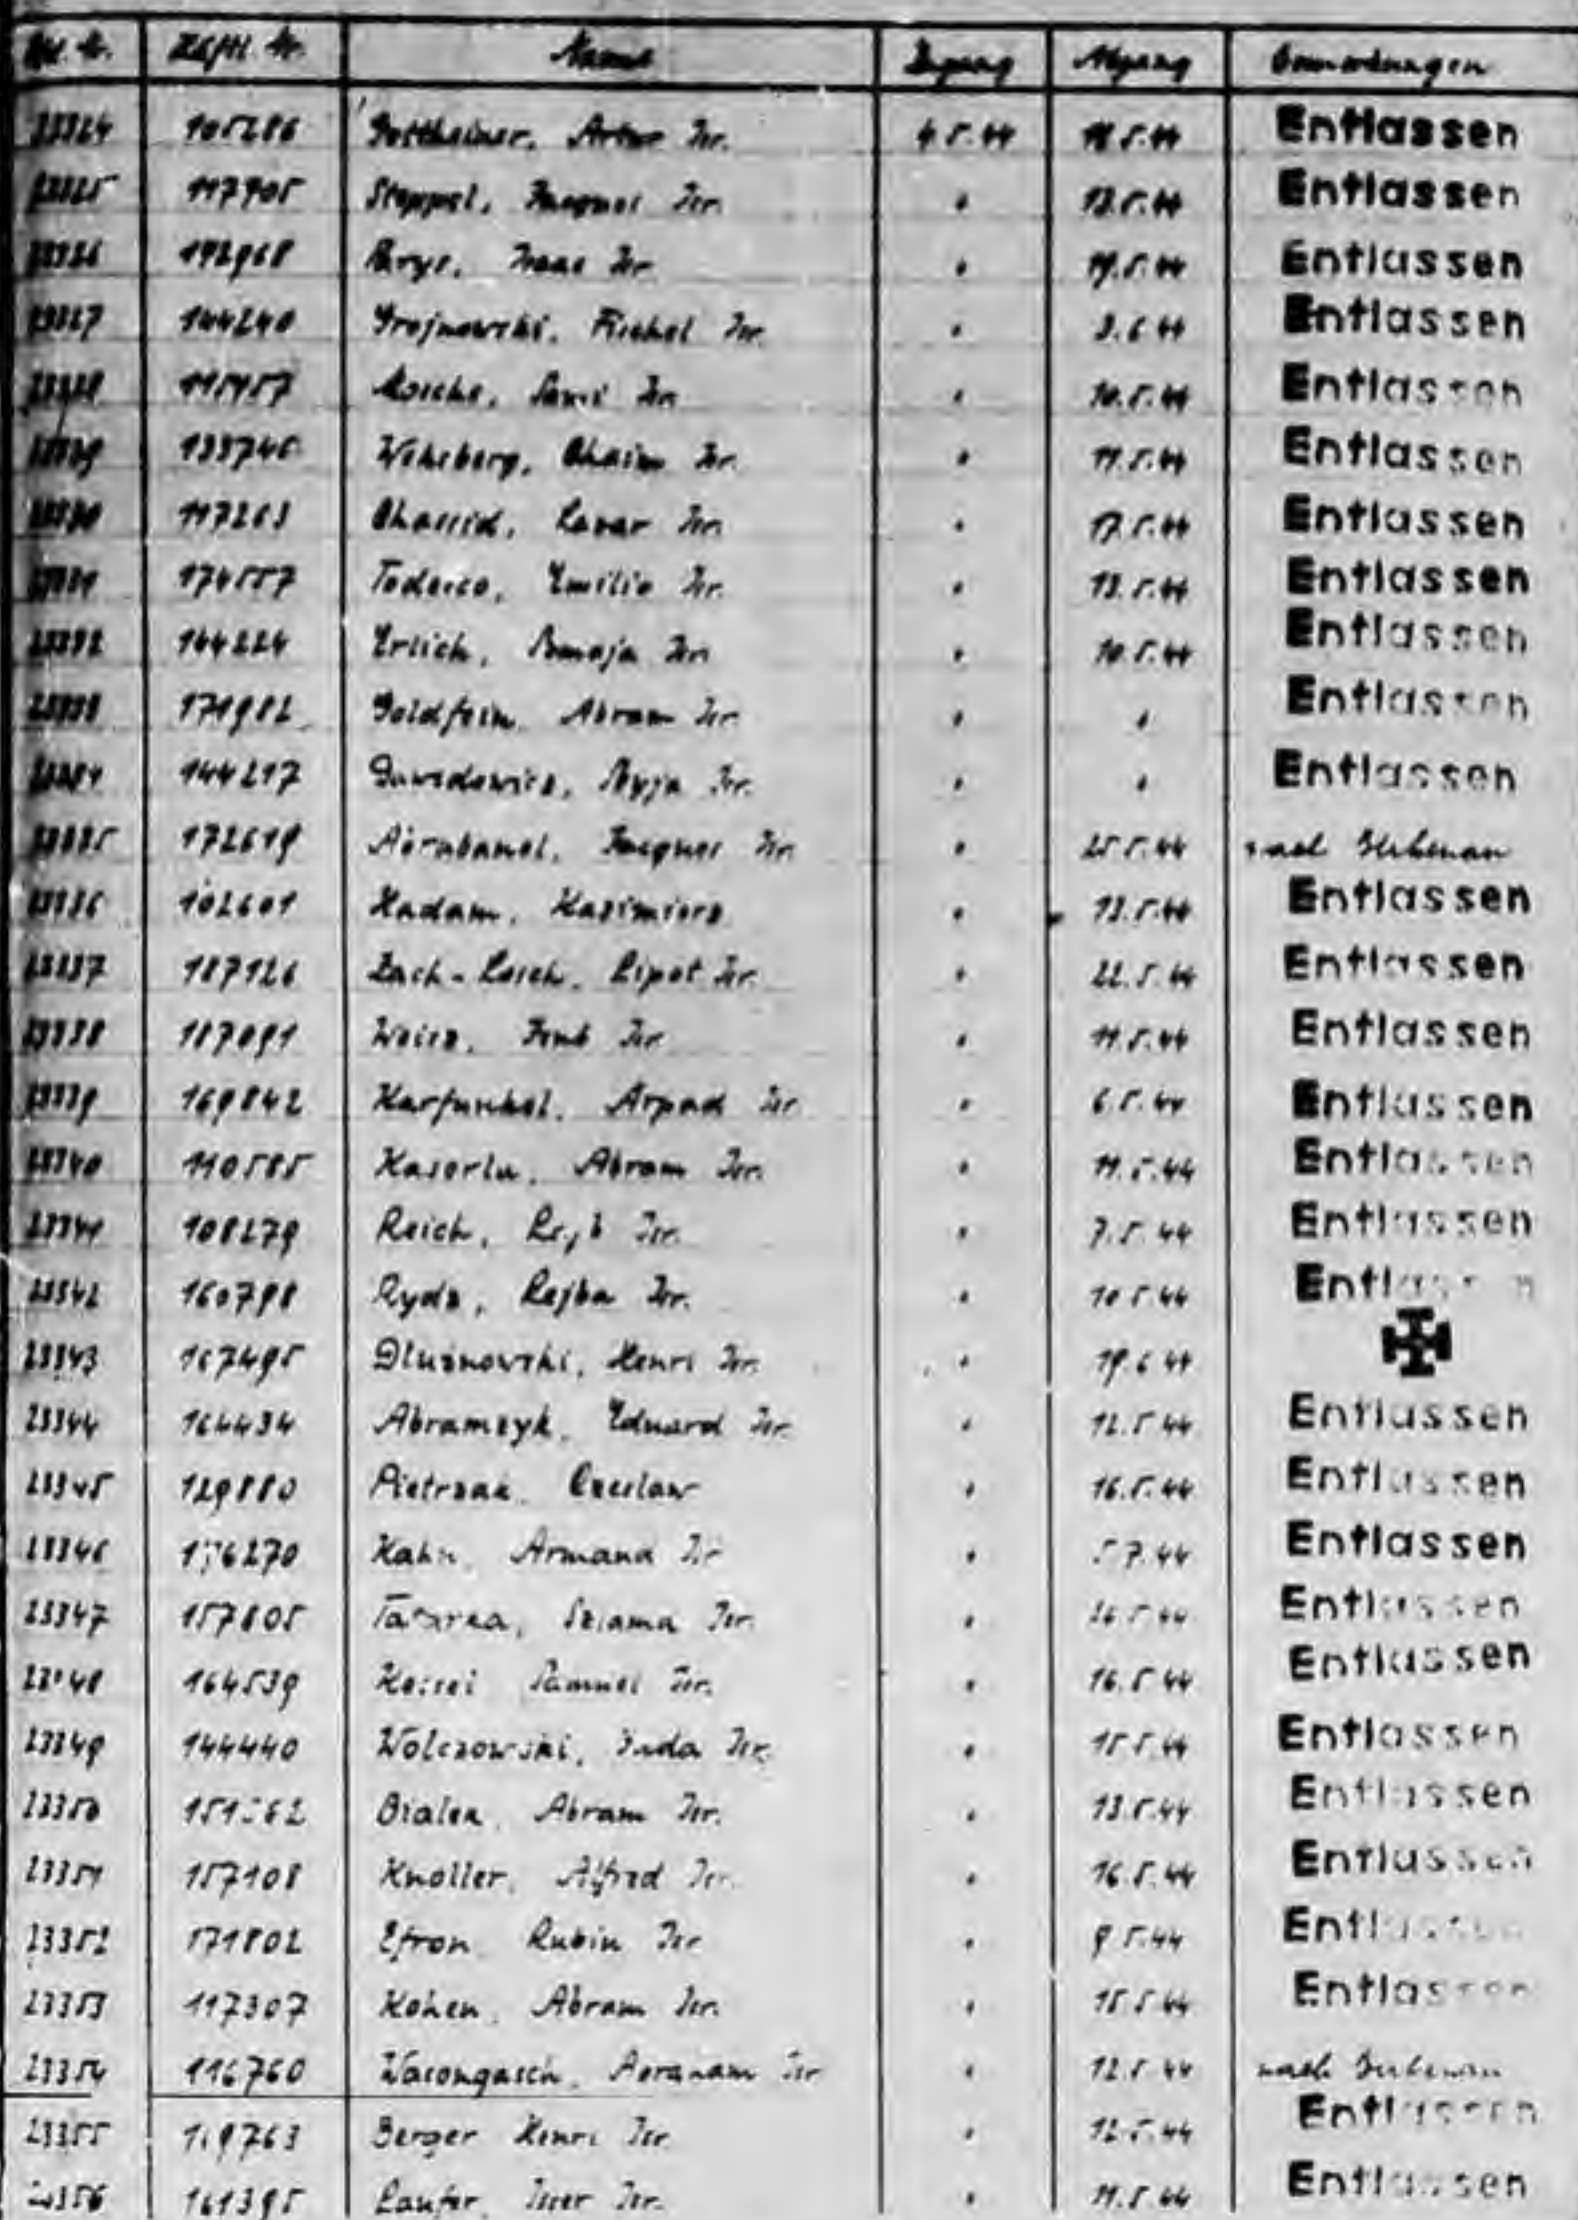 Lfd. Nr. Häftl. Nr. Name Zugang Abgang Bemerkungen
23324 105286 Gottheiner, Artur Isr. 4.5.44 18.5.44 Entlassen
23325 117705 Stoppel, Jacques Isr. " 13.5.44 Entlassen
23326 172968 Isaac Isr. " 19.5.44 Entlassen
23327 144240 Grojnowski, Fischel Isr. " 3.6.44 Entlassen
23328 115457 Isr. " 10.5.44 Entlassen
23329 133740 Chaim Isr. " 11.5.44 Entlassen
23330 117263 Chassid, Lazar Isr. " 17.5.44 Entlassen
23331 174557 Tedesco, Emilio Isr. " 13.5.44 Entlassen
23332 144224 Erlich, Isr. " 10.5.44 Entlassen
23333 171982 Goldfein, Abram Isr. " " Entlassen
23334 144217 Dawidowicz, Isr. " " Entlassen
23335 172619 Abrabanel, Jacques Isr. " 25.5.44 nach Birkenau
23336 102601 Kadam, Kazimierz " 13.5.44 Entlassen
23337 187126 Lipot Isr. " 22.5.44 Entlassen
23338 187091 Weisz, Isr. " 11.5.44 Entlassen
23339 169842 Karfunkel, Arpad Isr. " 6.5.44 Entlassen
23340 110585 Kasorla, Abram Isr. " 11.5.44 Entlassen
23341 108279 Reich, Isr. " 7.5.44 Entlassen
23342 160798 Rydz, Lejba Isr. " 10.5.44 Entlassen
23343 167495 Dluznowski, Henri Isr. " 19.6.44
23344 164434 Abramzyk, Eduard Isr. " 12.5.44 Entlassen
23345 129880 Pietrzak, Czeslaw " 16.5.44 Entlassen
23346 176270 Kahn, Armand Isr. " 5.7.44 Entlassen
23347 157805 Szlama Isr. " 26.5.44 Entlassen
23348 164539 Samuel Isr. " 16.5.44 Entlassen
23349 144440 Wolczowski, Juda Isr. " 15.5.44 Entlassen
23350 Bialek, Abram Isr. " 13.5.44 Entlassen
23351 157108 Knoller, Alfred Isr. " 16.5.44 Entlassen
23352 171802 Efron Rubin Isr. " 9.5.44 Entlassen
23353 117307 Kohen, Abram Isr. " 15.5.44 Entlassen
23354 116760 Abraham Isr. " 12.5.44 nach Birkenau
23355 Berger Henri Isr. " 12.5.44 Entlassen
23356 161395 Laufer, Isr. " 11.5.44 Entlassen